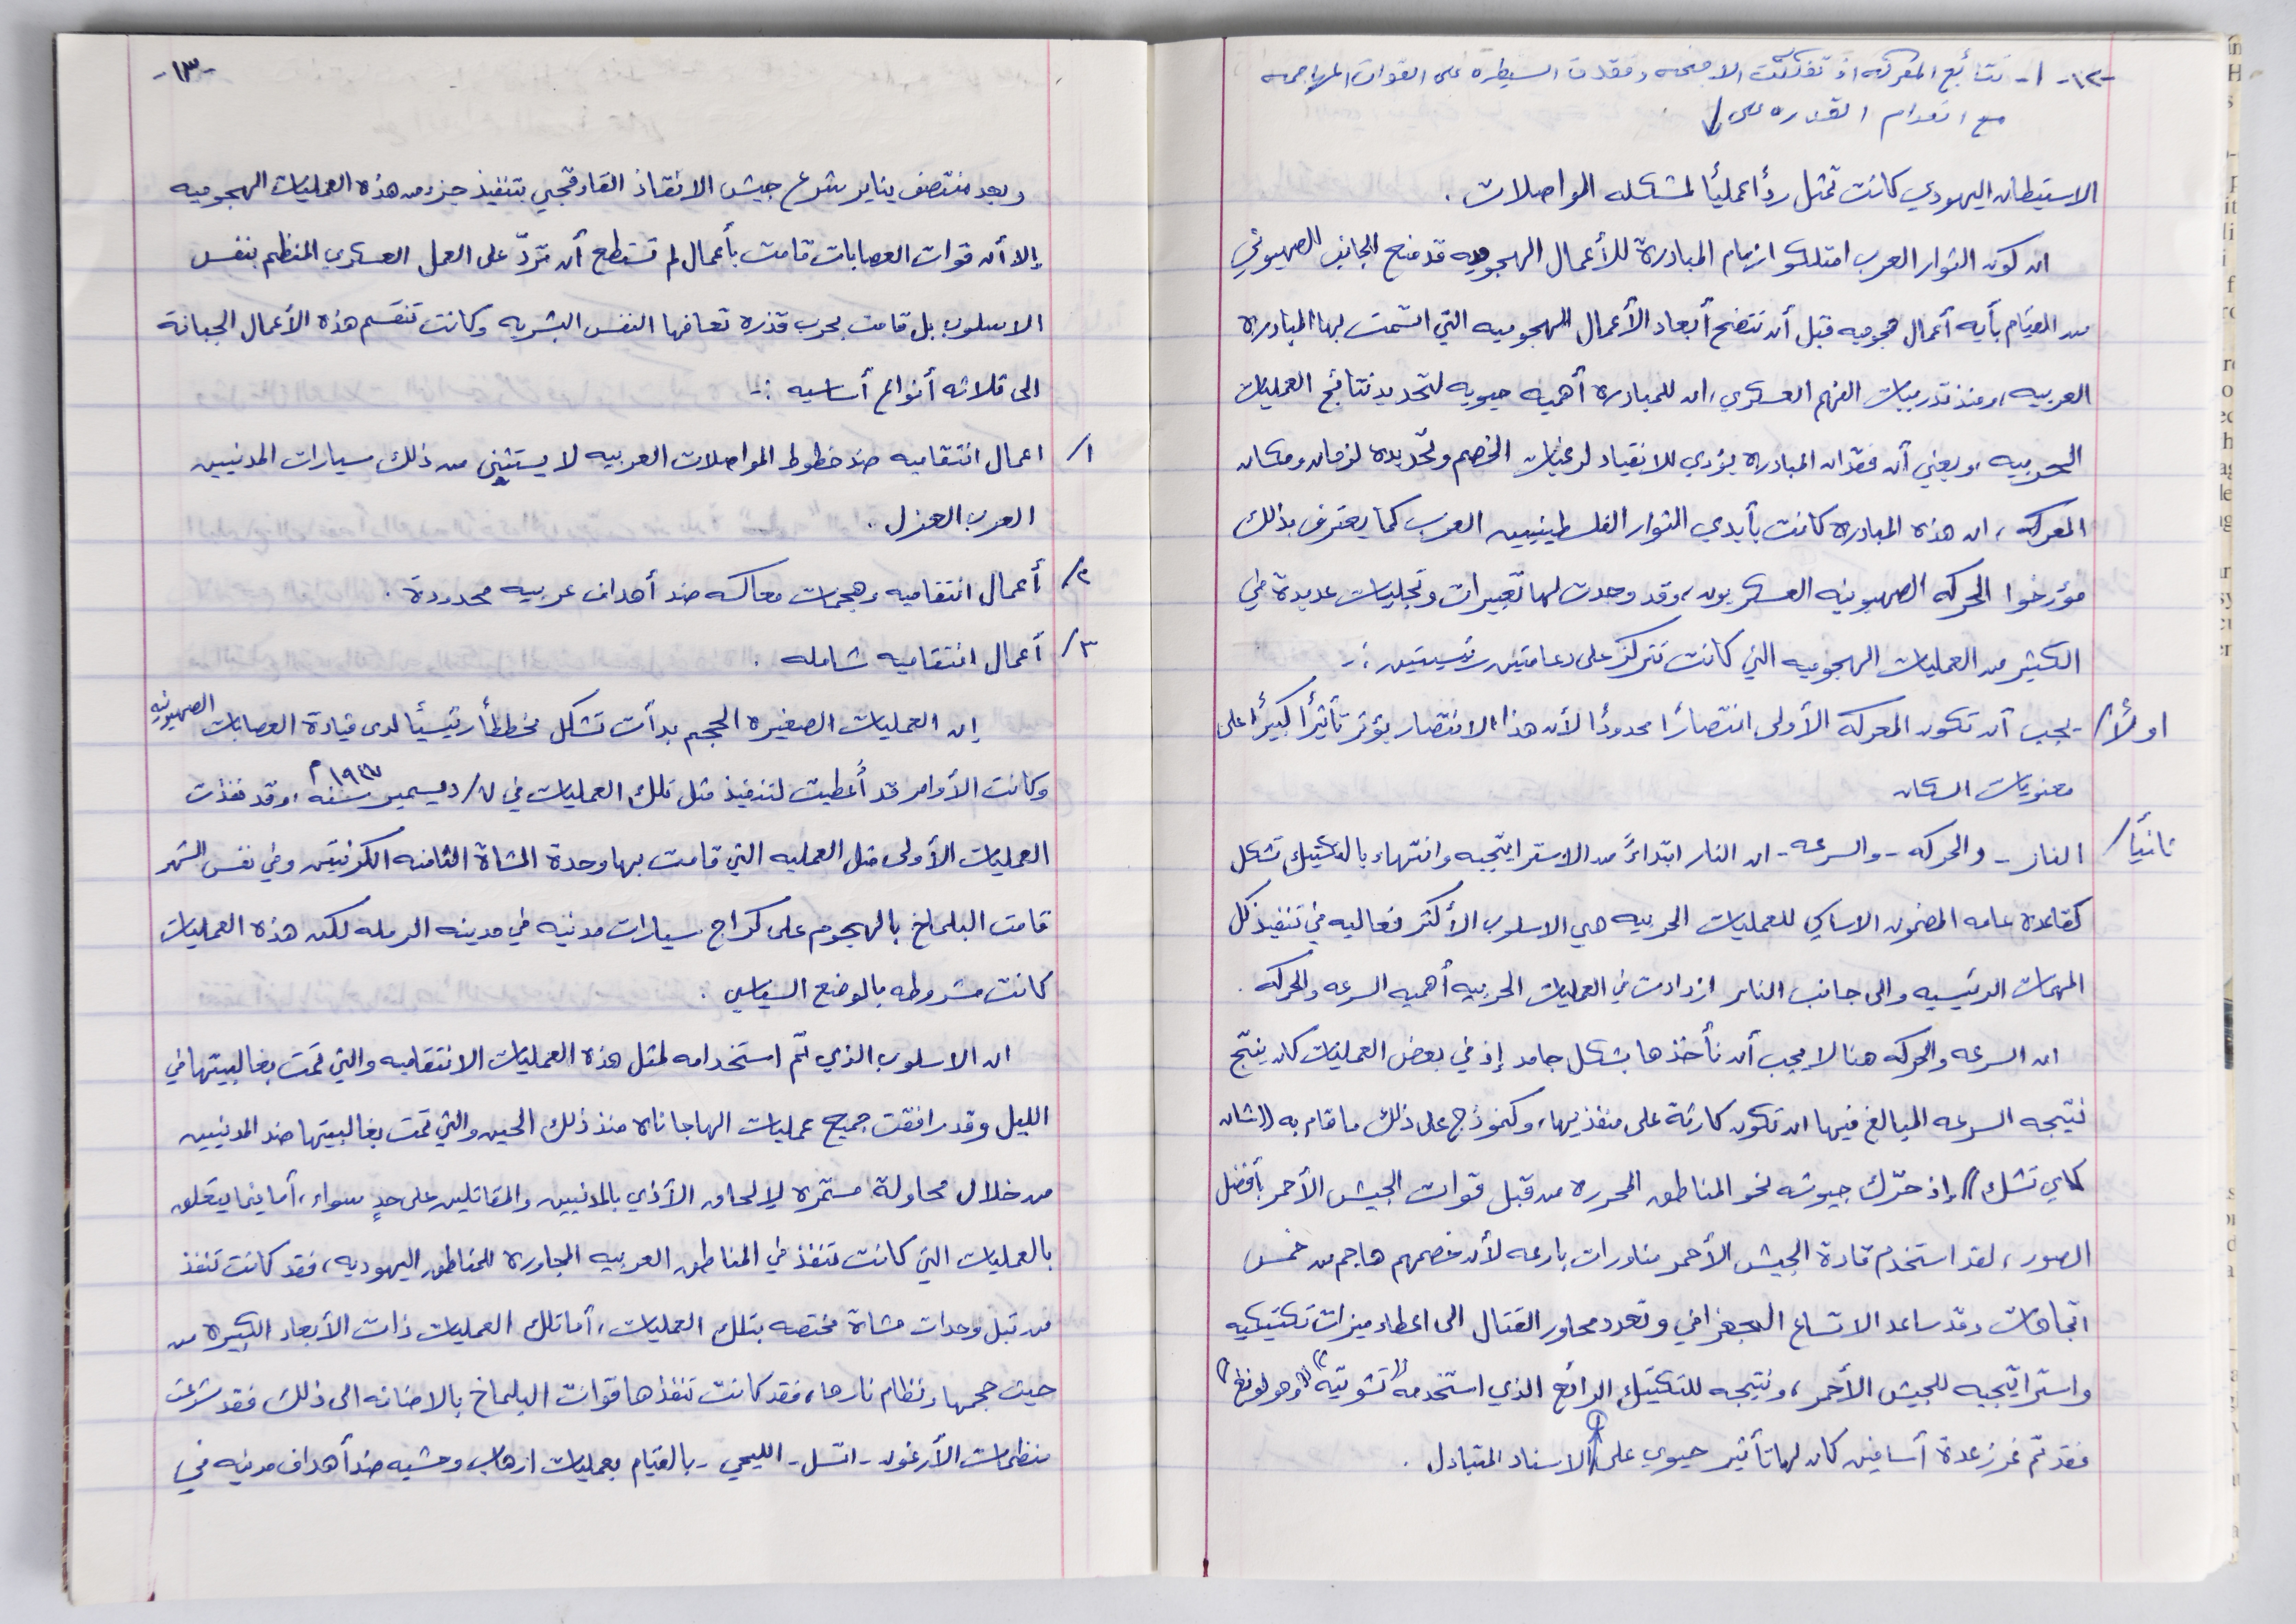 -١٢- ١- نتائج المعركه اذ تفككت الاجنحه وفقدت السيطره على القوات المهاجمه
مع انعدام القدره على ↓
الاستيطان اليهودي كانت تمثل ردأ عمليأ لمشكله المواصلات .
ان كون الثوار العرب امتلكوا زمام المبادرة للأعمال الهجوميه قد منع الجانب الصهيوني
من القيام بأيه أعمال هجوميه قبل أن تتضح أبعاد الأعمال الهجوميه التي اتسمت بها المبادره
العربيه، ومنذ تدريبات الفهم العسكري، ان للمبادره أهميه حيويه لتحديد نتائج العمليات
الحربيه، ويعني أن فقدان المبادره يؤدي للانقياد لرغبات الخصم وتحديده لزمان ومكان
المعركه، ان هذه المبادره كانت بأيدي الثوار الفلسطينيين العرب كما يعترف بذلك
مؤرخوا الحركه الصهيونيه العسكريون، وقد وجدت لها تعبيرات وتجليات عديدة في
الكثير من العمليات الهجوميه التي كانت تتركز على دعامتين رئيسيتين :-
اولأ/ - يجب أن تكون المعركة الأولى انتصارأ محدودأ لأن هذا الانتصار يؤثر تأثيرأ كبيرأ على
معنويات السكان
ثانيأ/ النار - والحركه - والسرعه - ان النار ابتداءً من الاستراتيجيه وانتهاء بالتكتيك تشكل
كقاعدة عامه المضمون الاساسي للعمليات الحربيه هي الاسلوب الأكثر فعاليه في تنفيذ كل
المهمات الرئيسيه والى جانب النار ازدادت في العمليات الحربيه أهميه السرعه والحركه .
ان السرعه والحركه هنا لا يجب أن نأخذها بشكل جامد إذ في بعض العمليات كان ينتج
نتيجه السرعه المبالغ فيها ان تكون كارثة على منفذيها، وكنموذج على ذلك ما قام به ((شان
كاي تشك)) إذ حرّك جيوشه نحو المناطق المحرره من قبل قوات الجيش الأحمر بأفضل
الصور، لقد استخدم قادة الجيش الأحمر مناورات بارعه لأن خصمهم هاجم من خمس
اتجاهات وقد ساعد الاتساع الجغرافي وتعدد محاور القتال الى اعطاء ميزات تكتيكيه
واستراتيجيه للجيش الأحمر، ونتيجه للتكتيك الرائع الذي استخدمه ((تشوتيه)) ((وهو لونغ))
فقد تم غرز عدة أسافين كان لها تأثير حيوي على ↑ الاسناد المتبادل .
-١٣-
وبعد منتصف يناير شرع جيش الانقاذ القاوقجي بتنفيذ جزء من هذه العمليات الهجوميه
إلا أن قوات العصابات قامت بأعمال لم تستطع أن تردّ على العمل العسكري المنظم بنفس
الاسلوب بل قامت بحرب قذره تعافها النفس البشريه وكانت تنقسم هذه الأعمال الجبانة
الى ثلاثه أنواع أساسيه :-
١/ اعمال انتقاميه ضد خطوط المواصلات العربيه لا يستثنى من ذلك سيارات المدنيين
العرب العزل .
٢/ أعمال انتقاميه وهجمات معاكسه ضد أهداف عربيه محدودة .
٣/ أعمال انتقاميه شامله .
إن العمليات الصغيره الحجم بدأت تشكل مخططأ رئيسيأ لدى قيادة العصابات الصهيونيه
وكانت الأوامر قد أُعطيت لتنفيذ مثل تلك العمليات في ٧/ ديسمبر سنه ١٩٤٧م، وقد نفذت
العمليات الأولى مثل العمليه التي قامت بها وحدة المشاة الثامنه الكرنيتين وفي نفس الشهر
قامت البلماخ بالهجوم على كراج سيارات مدنيه في مدينه الرمله لكن هذه العمليات
كانت مشروطه بالوضع السياسي .
ان الاسلوب الذي تمّ استخدامه لمثل هذه العمليات الانتقاميه والتي تمت بغالبيتها في
الليل وقد رافقت جميع عمليات الهاجاناه منذ ذلك الحين والتي تمت بغالبيتها ضد المدنيين
من خلال محاولة مستمّره لإلحاق الأذى بالمدنيين والمقاتلين على حدٍ سواء، أما فيما يتعلق
بالعمليات التي كانت تنفذ في المناطق العربيه المجاوره للمناطق اليهوديه، فقد كانت تنفذ
من قبل وحدات مشاة مختصه بتلك العمليات، أما تلك العمليات ذات الأبعاد الكبيره من
حيث حجمها ونظام نارها، فقد كانت تنفذها قوات البلماخ بالاضافه الى ذلك فقد شرعت
منظمات الأرغون - اتسل - الليحي - بالقيام بعمليات ارهاب وحشيه ضد أهداف مدنيه في